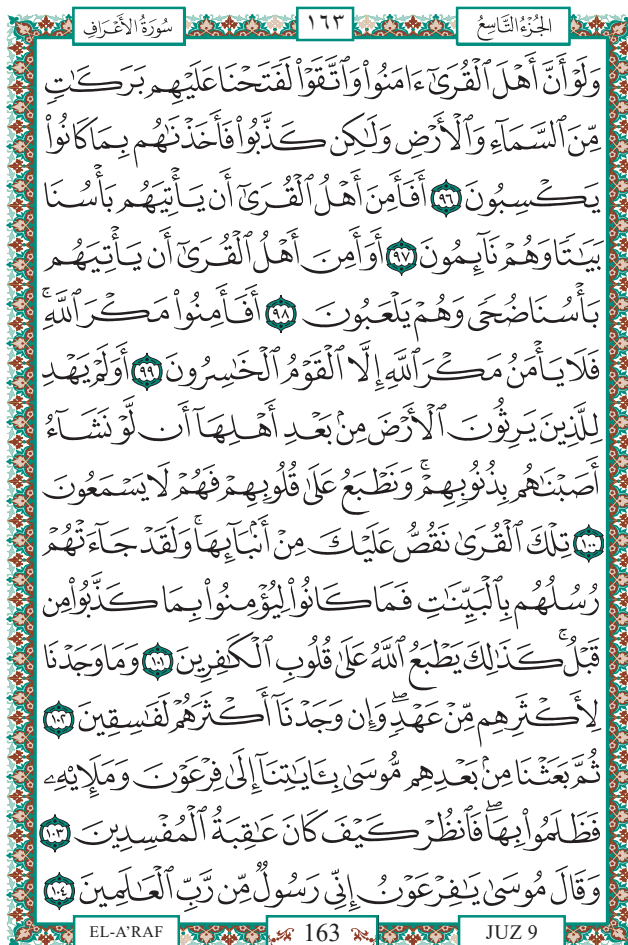 سُورَةُ الأَعْرَافِ ١٦٣ الجُزْءُ التَّاسِعُ
وَلَوْ أَنَّ أَهْلَ ٱلْقُرَىٰٓ ءَامَنُوا۟ وَٱتَّقَوْا۟ لَفَتَحْنَا عَلَيْهِم بَرَكَٰتٍ
مِّنَ ٱلسَّمَآءِ وَٱلْأَرْضِ وَلَٰكِن كَذَّبُوا۟ فَأَخَذْنَٰهُم بِمَا كَانُوا۟
يَكْسِبُونَ ٩٦ أَفَأَمِنَ أَهْلُ ٱلْقُرَىٰٓ أَن يَأْتِيَهُم بَأْسُنَا
بَيَٰتًا وَهُمْ نَآئِمُونَ ٩٧ أَوَأَمِنَ أَهْلُ ٱلْقُرَىٰٓ أَن يَأْتِيَهُم
بَأْسُنَا ضُحًى وَهُمْ يَلْعَبُونَ ٩٨ أَفَأَمِنُوا۟ مَكْرَ ٱللَّهِ ۚ
فَلَا يَأْمَنُ مَكْرَ ٱللَّهِ إِلَّا ٱلْقَوْمُ ٱلْخَٰسِرُونَ ٩٩ أَوَلَمْ يَهْدِ
لِلَّذِينَ يَرِثُونَ ٱلْأَرْضَ مِنۢ بَعْدِ أَهْلِهَآ أَن لَّوْ نَشَآءُ
أَصَبْنَٰهُم بِذُنُوبِهِمْ ۚ وَنَطْبَعُ عَلَىٰ قُلُوبِهِمْ فَهُمْ لَا يَسْمَعُونَ
١٠٠ تِلْكَ ٱلْقُرَىٰ نَقُصُّ عَلَيْكَ مِنْ أَنۢبَآئِهَا ۚ وَلَقَدْ جَآءَتْهُمْ
رُسُلُهُم بِٱلْبَيِّنَٰتِ فَمَا كَانُوا۟ لِيُؤْمِنُوا۟ بِمَا كَذَّبُوا۟ مِن
قَبْلُ ۚ كَذَٰلِكَ يَطْبَعُ ٱللَّهُ عَلَىٰ قُلُوبِ ٱلْكَٰفِرِينَ ١٠١ وَمَا وَجَدْنَا
لِأَكْثَرِهِم مِّنْ عَهْدٍ ۖ وَإِن وَجَدْنَآ أَكْثَرَهُمْ لَفَٰسِقِينَ ١٠٢
ثُمَّ بَعَثْنَا مِنۢ بَعْدِهِم مُّوسَىٰ بِـَٔايَٰتِنَآ إِلَىٰ فِرْعَوْنَ وَمَلَإِي۟هِۦ
فَظَلَمُوا۟ بِهَا ۖ فَٱنظُرْ كَيْفَ كَانَ عَٰقِبَةُ ٱلْمُفْسِدِينَ ١٠٣
وَقَالَ مُوسَىٰ يَٰفِرْعَوْنُ إِنِّى رَسُولٌ مِّن رَّبِّ ٱلْعَٰلَمِينَ ١٠٤
EL-A'RAF 163 JUZ 9